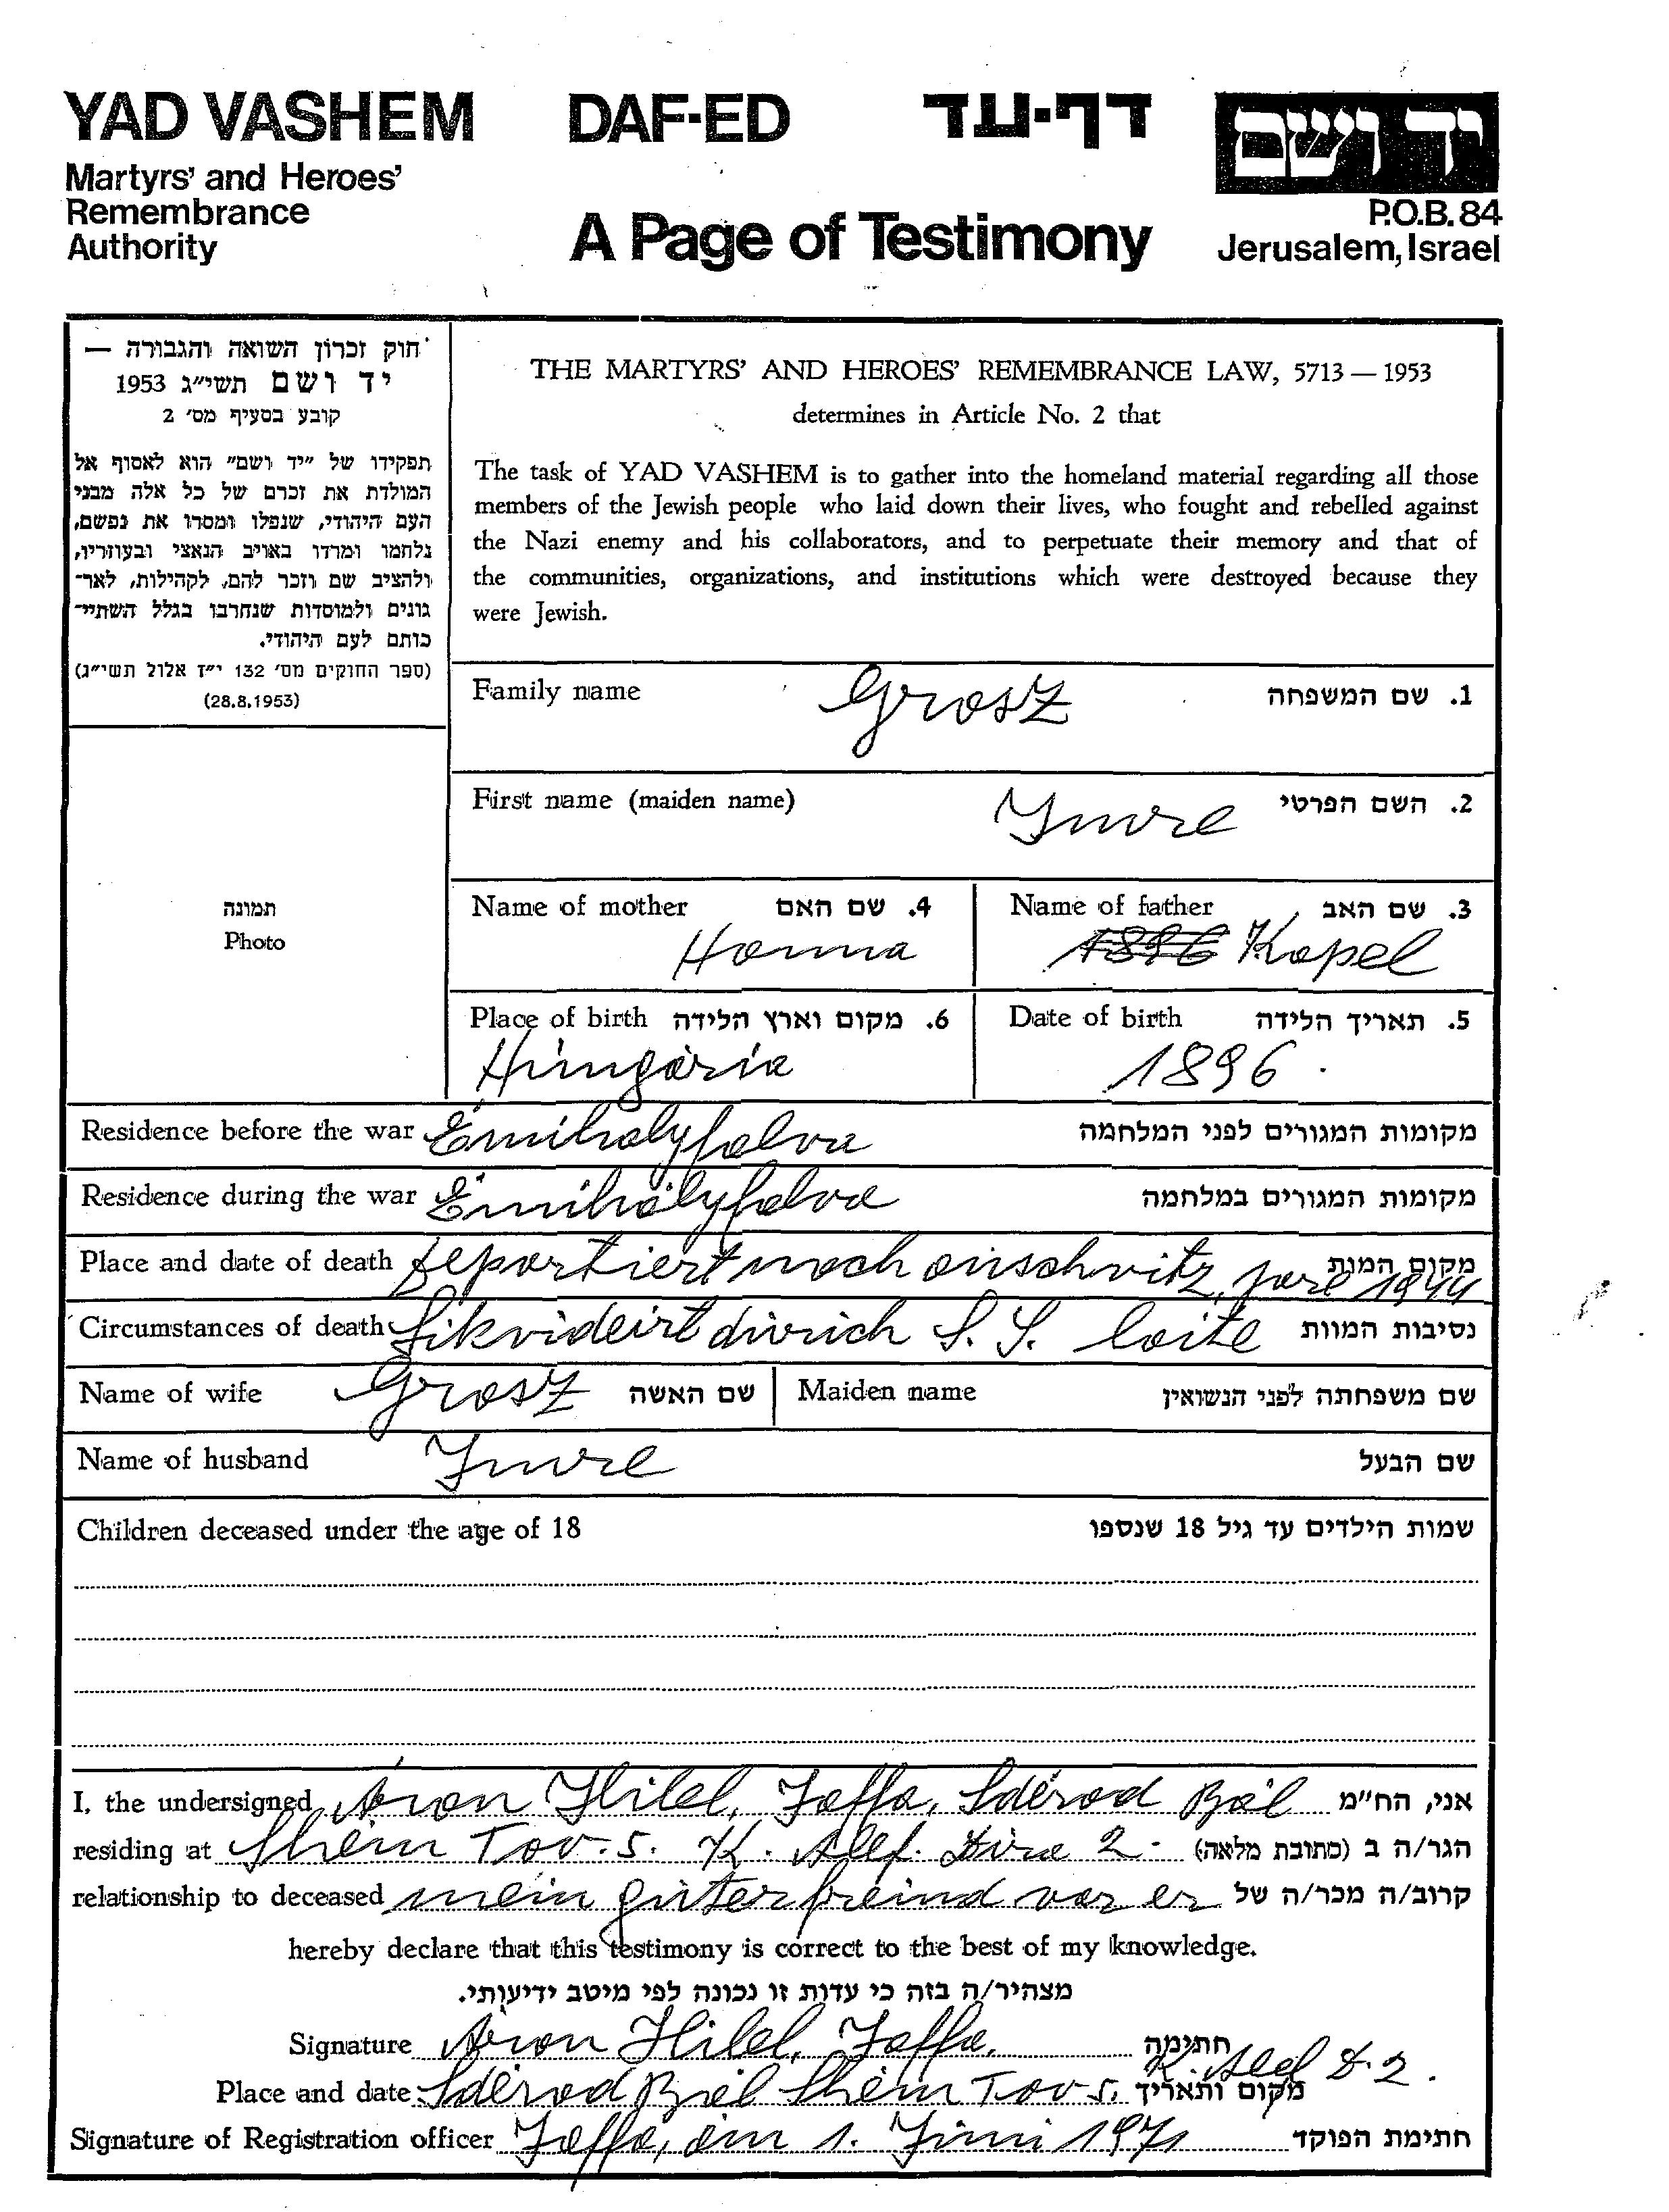 YAD VASHEM DAF-ED דף-עד יד ושם
Martyrs' and Heroes'
Remembrance
Authority
A Page of Testimony
P.O.B. 84
Jerusalem, Israel
חוק זכרון השואה והגבורה —
יד ושם תשי״ג 1953
קובע בסעיף מס׳ 2
תפקידו של ״יד ושם״ הוא לאסוף אל
המולדת את זכרם של כל אלה מבני
העם היהודי, שנפלו ומסרו את נפשם,
נלחמו ומרדו באויב הנאצי ובעוזריו,
ולהציב שם וזכר להם, לקהילות, לאר־
גונים ולמוסדות שנחרבו בגלל השתיי־
כותם לעם היהודי.
(ספר החוקים מס׳ 132 י״ז אלול תשי״ג)
(28.8.1953)
תמונה
Photo
THE MARTYRS' AND HEROES' REMEMBRANCE LAW, 5713 — 1953
determines in Article No. 2 that
The task of YAD VASHEM is to gather into the homeland material regarding all those
members of the Jewish people who laid down their lives, who fought and rebelled against
the Nazi enemy and his collaborators, and to perpetuate their memory and that of
the communities, organizations, and institutions which were destroyed because they
were Jewish.
Family name Grosz 1. שם המשפחה
First name (maiden name) Imre 2. השם הפרטי
Name of mother 4. שם האם Name of father 3. שם האב
Hanna 1896 Kopel
Place of birth 6. מקום וארץ הלידה Date of birth 5. תאריך הלידה
Hungária 1896.
Residence before the war Émihályfalva מקומות המגורים לפני המלחמה
Residence during the war Émihályfalva מקומות המגורים במלחמה
Place and date of death deportiert nach auschvitz, jare 1944 מקום המות
Circumstances of death likvideirt durich S. S. loite נסיבות המוות
Name of wife Grosz שם האשה Maiden name שם משפחתה לפני הנשואין
Name of husband Imre שם הבעל
Children deceased under the age of 18 שמות הילדים עד גיל 18 שנספו
I, the undersigned Aron Hilel, Jaffa, Sdérod Bál אני, הח״מ
residing at Shém Tov. 5. K. Alef. Dira 2. הגר/ה ב (כתובת מלאה)
relationship to deceased mein guter freind var er קרוב/ה מכר/ה של
hereby declare that this testimony is correct to the best of my knowledge.
מצהיר/ה בזה כי עדות זו נכונה לפי מיטב ידיעותי.
Signature Aron Hilel, Jaffa, חתימה
Place and date Sdérod Bál Shém Tov 5. K. Alef D. 2. מקום ותאריך
Signature of Registration officer Jaffa, am 1. Juni 1971 חתימת הפוקד